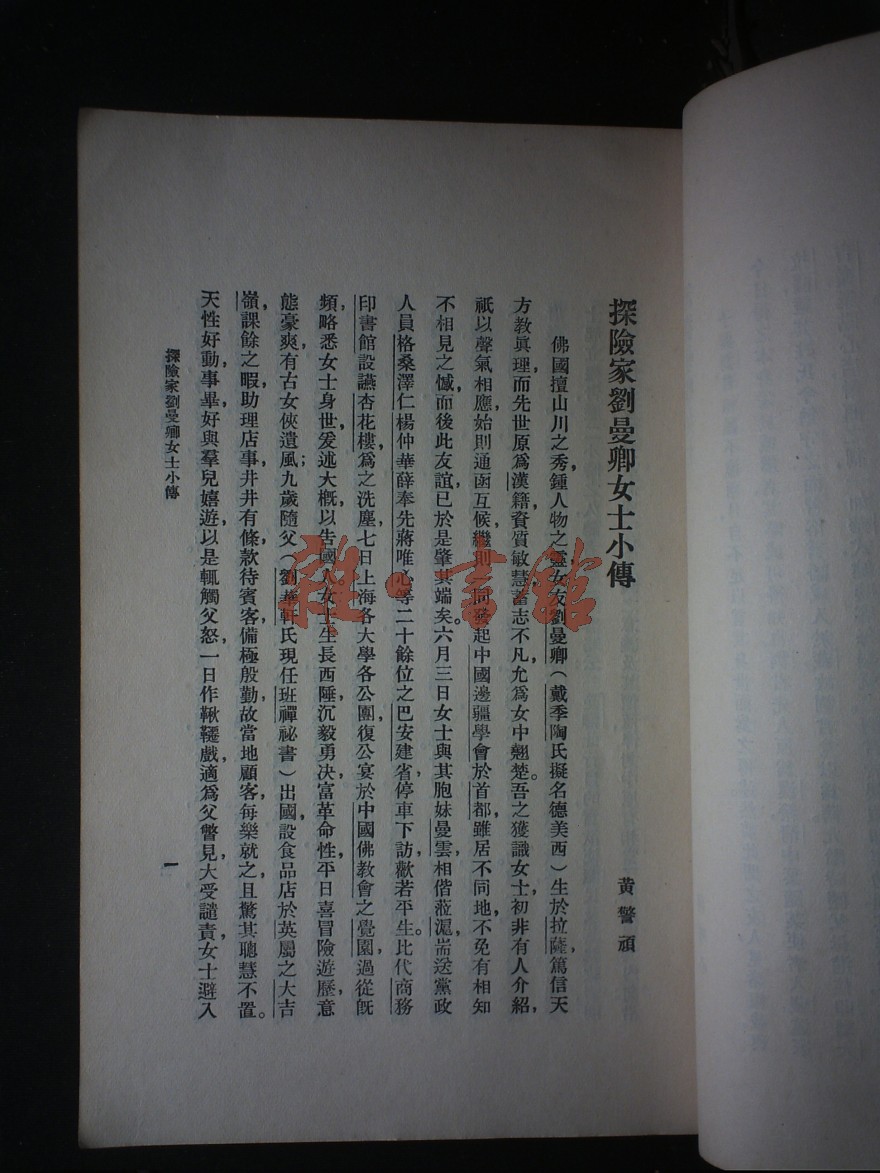 探險家劉曼卿女士小傳
黃警頑
佛國擅山川之秀，鍾人物之靈，女友劉曼卿（戴季陶氏擬名德美西）生於拉薩，篤信天
方教眞理，而先世原爲漢籍，資質敏慧，蓄志不凡，允爲女中翹楚。吾之獲識女士，初非有人介紹，
祇以聲氣相應，始則通函互候，繼則同發起中國邊疆學會於首都，雖居不同地，不免有相知
不相見之憾，而後此友誼，已於是肇其端矣。六月三日女士與其胞妹曼雲，相偕蒞滬，耑送黨政
人員格桑澤仁楊仲華薛奉先蔣唯心等二十餘位之巴安建省，停車下訪，歡若平生。比代商務
印書館設讌杏花樓，爲之洗塵，七日上海各大學各公團，復公宴於中國佛教會之覺園，過從旣
頻，略悉女士身世，爰述大槪，以告國人。女士生長西陲，沉毅勇決，富革命性，平日喜冒險遊歷，意
態豪爽，有古女俠遺風；九歲隨父（劉華軒氏現任班禪祕書）出國，設食品店於英屬之大吉
嶺，課餘之暇，助理店事，井井有條，款待賓客，備極殷勤，故當地顧客，每樂就之，且驚其聰慧不置。
天性好動，事畢好與羣兒嬉遊，以是輒觸父怒，一日作鞦韆戲，適爲父瞥見，大受譴責，女士避入
探險家劉曼卿女士小傳
一
雜·書館